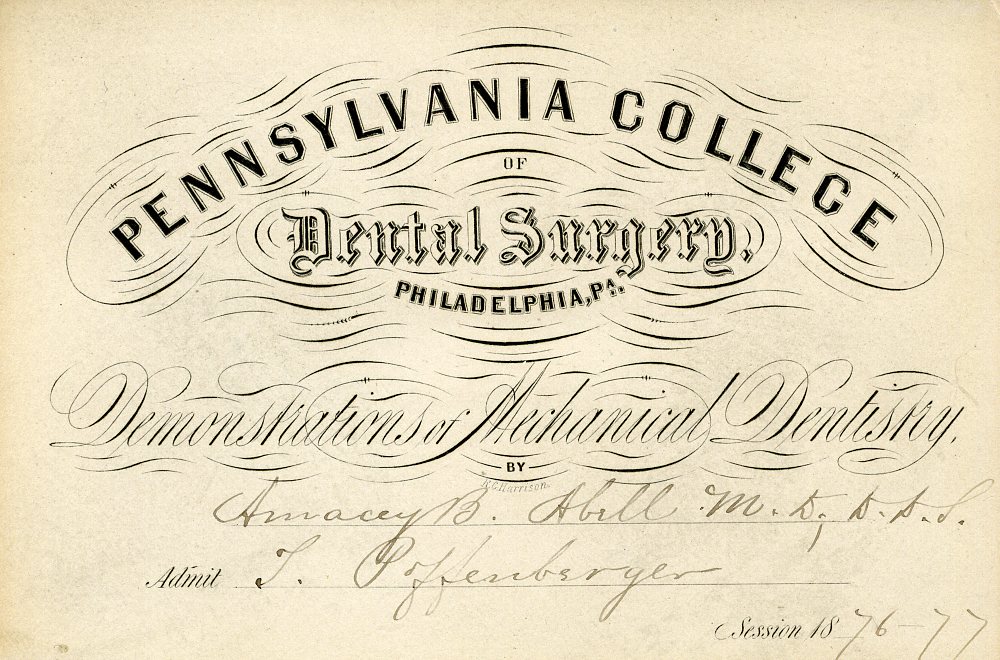 PENNSYLVANIA COLLEGE
OF
Dental Surgery.
PHILADELPHIA, PA.
Demonstrations of Mechanical Dentistry,
BY
Harrison.
Amacey B. Abell M.D., D.D.S.
Admit T. Poffenberger
Session 1876-77